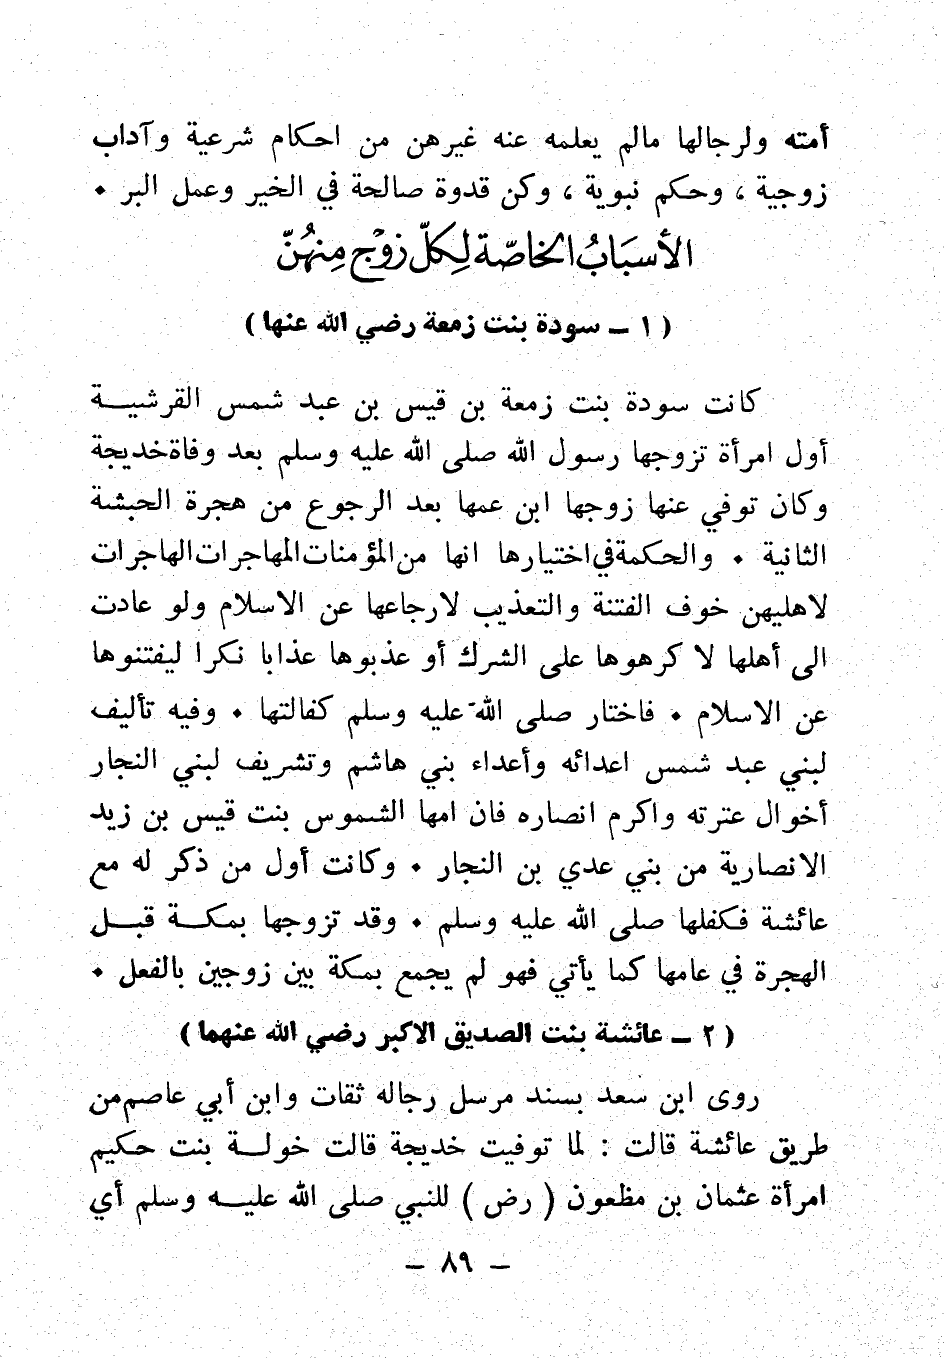 أمته ولرجالها مالم يعلمه عنه غيرهن من احكام شرعية وآداب
زوجية ، وحكم نبوية ، وكن قدوة صالحة في الخير وعمل البر •
الأسبَابُ الخاصّة لِكلّ زوْجٍ مِنهُنّ
( ١ ـ سودة بنت زمعة رضي الله عنها )
كانت سودة بنت زمعة بن قيس بن عبد شمس القرشيــة
أول امرأة تزوجها رسول الله صلى الله عليه وسلم بعد وفاةخديجة
وكان توفي عنها زوجها ابن عمها بعد الرجوع من هجرة الحبشة
الثانية • والحكمةفياختيارها انها منالمؤمناتالمهاجراتالهاجرات
لاهليهن خوف الفتنة والتعذيب لارجاعها عن الاسلام ولو عادت
الى أهلها لا كرهوها على الشرك أو عذبوها عذابا نكرا ليفتنوها
عن الاسلام • فاختار صلى الله عليه وسلم كفالتها • وفيه تأليف
لبني عبد شمس اعدائه وأعداء بني هاشم وتشريف لبني النجار
أخوال عترته واكرم انصاره فان امها الشموس بنت قيس بن زيد
الانصارية من بني عدي بن النجار • وكانت أول من ذكر له مع
عائشة فكفلها صلى الله عليه وسلم • وقد تزوجها بمكــة قبــل
الهجرة في عامها كما يأتي فهو لم يجمع بمكة بين زوجين بالفعل •
( ٢ ـ عائشة بنت الصديق الاكبر رضي الله عنهما )
روى ابن سعد بسند مرسل رجاله ثقات وابن أبي عاصممن
طريق عائشة قالت : لما توفيت خديجة قالت خولــة بنت حكيم
امرأة عثمان بن مظعون ( رض ) للنبي صلى الله عليــه وسلم أي
ـ ٨٩ ـ